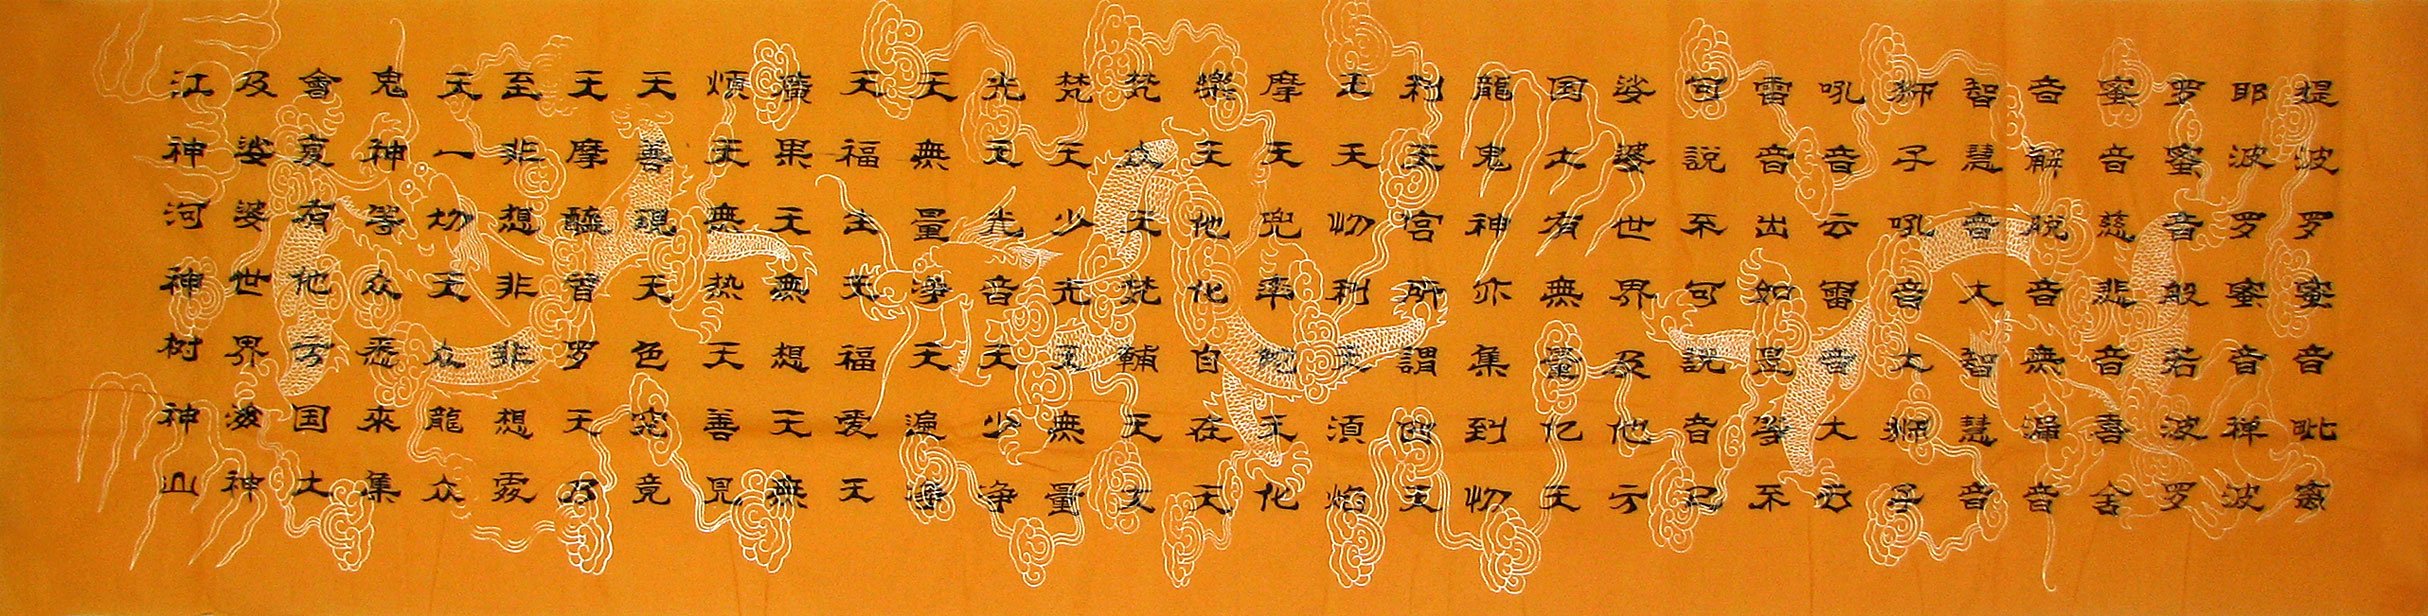 提波罗蜜音毗离
耶波罗蜜音禅波
罗蜜音般若波罗
蜜音慈悲音喜舍
音解脱音無漏音
智慧音大智慧音
狮子吼音大狮子
吼音云雷音大云
雷音出如是等不
可説不可説音已
娑婆世界及他方
国土有無量亿天
龍鬼神亦集到忉
利天宫所謂四天
王天忉利天湏焰
摩天兜率陀天化
樂天他化自在天
梵众天梵輔天大
梵天少光天無量
光天光音天少净
天無量净天遍净
天福生天福爱天
廣果天無想天無
煩天無热天善見
天善現天色究竟
天摩醯首罗天乃
至非想非非想處
天一切天众龍众
鬼神等众悉來集
會夏有他方国土
及娑婆世界海神
江神河神树神山